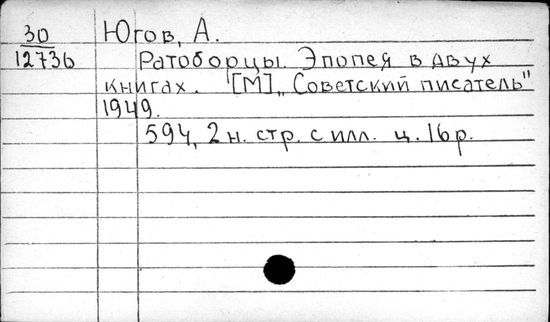 30 Югов, А.
12736 Ратоборцы. Эпопея в двух
книгах. [М] „Советский писатель"
1949.
594, 2 н. стр. с илл. ц. 16 р.